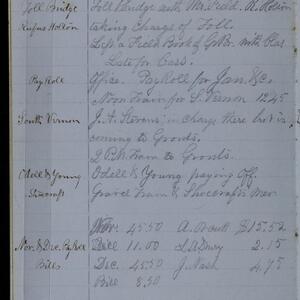 Toll Bridge Toll Bridge with Mr. Field. R. Holton
Rufus Holton taking Charge of Toll.
Left a Field Book & Go Br. with Chas
for Cars.
Pay Roll Office. Pay Roll for Jan. &c.
Noon Train for S. Vernon 12.45
South Vernon J. A. Stevens in charge there but is
coming to Grouts.
2 P.M. Train to Grouts.
Odell & Young Odell & Young paying off.
Gravel Train & Men
Nov. 45.50 A. 15.52
Nov. & Dec. Pay Roll Bill 11.00 2.15
Bills Dec. 45.50 J. Nash 4.75
Bill 8.50